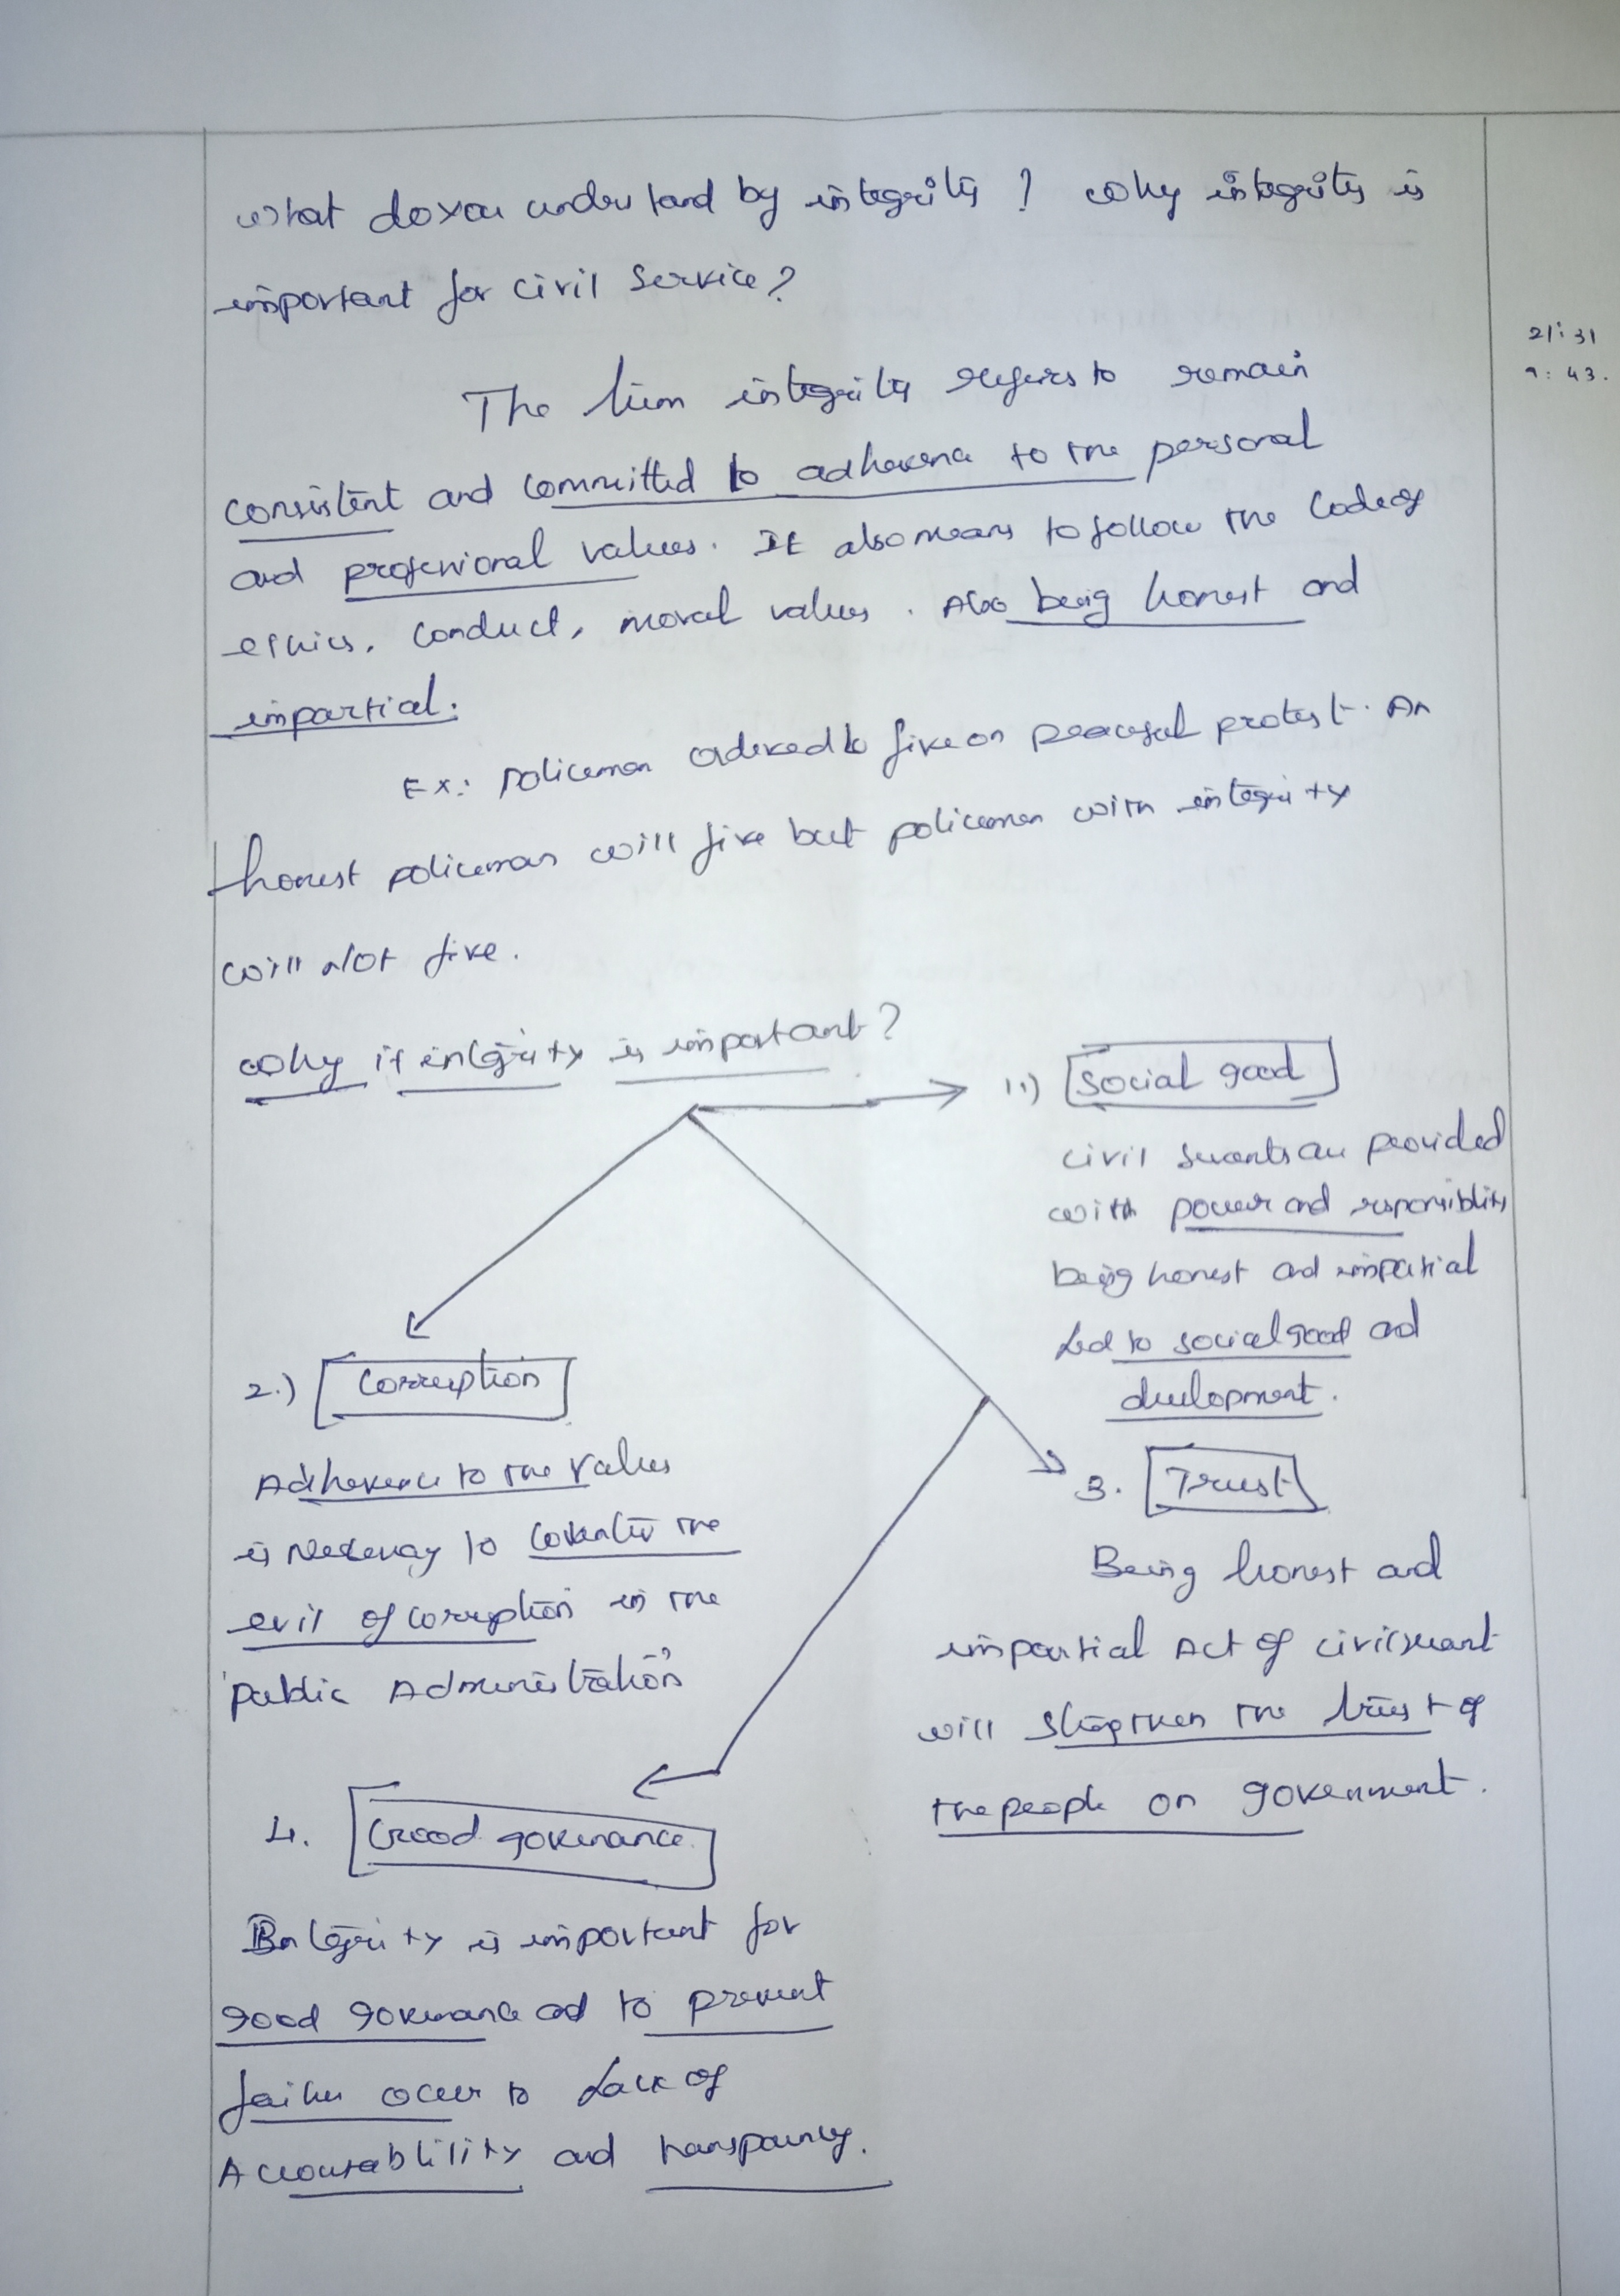 What do you understand by integrity ? Why integrity is
important for civil service?
21:31
9:43.
The term integrity refers to remain
consistent and committed to adherence to the personal
and professional values. It also means to follow the code of
ethics, conduct, moral values. Also being honest and
impartial.
Ex: policeman ordered to fire on peaceful protest. An
honest policeman will fire but policeman with integrity
will not fire.
Why it integrity is important?
1.) Social good
civil servants are provided
with power and responsibility
being honest and impartial
led to social good and
development.
2.) Corruption
Adherence to the values
is necessary to counter the
evil of corruption in the
public Administration
3. Trust
Being honest and
impartial Act of civil servant
will the trust of
the people on government.
4. Good governance
Integrity is important for
good governance and to prevent
failure occur to Lack of
Accountablility and transparency.